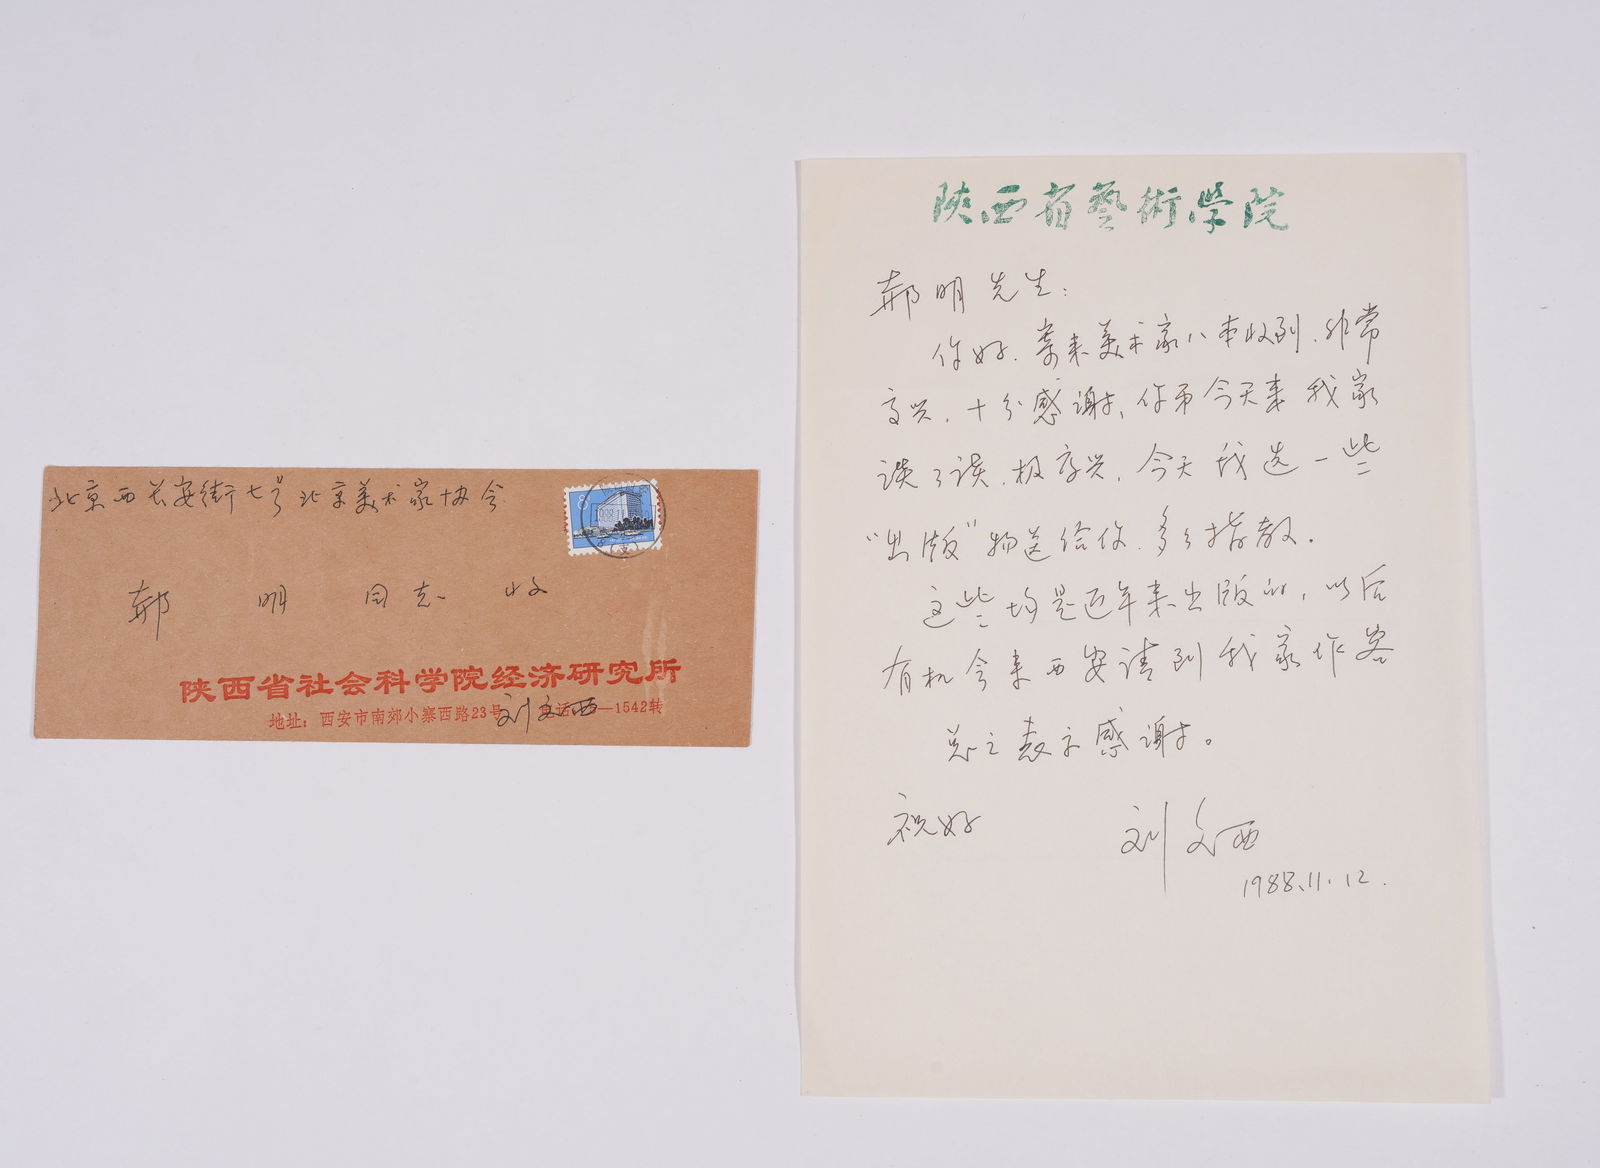 北京西长安街七号北京美术家协会
8
郝明同志 收
陕西省社会科学院经济研究所
地址：西安市南郊小寨西路23号 刘文西 —1542转
陝西省藝術學院
郝明先生：
你好.寄来美术家八本收到.非常
高兴.十分感谢、你弟今天来我家
谈了谈.极高兴.今天我选一些
“出版”物送给你.多多指教.
这些均是近年来出版的，以后
有机会来西安请到我家作客
总之表示感谢。
祝好
刘文西
1988.11.12.